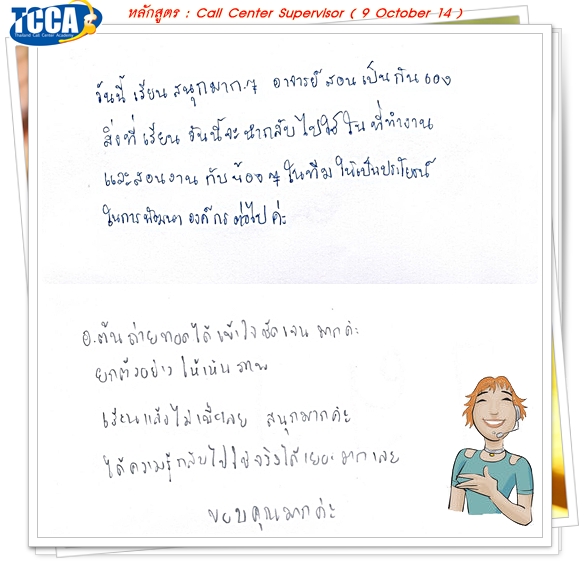 TCCA
Thailand Call Center Academy
หลักสูตร : Call Center Supervisor ( 9 October 14 )
วันนี้ เรียน สนุกมาก ๆ อาจารย์ สอน เป็น กันเอง
สิ่งที่ เรียน วันนี้จะนำกลับไปใช้ ใน ที่ทำงาน
และสอนงาน กับ น้อง ๆ ในทีม ให้เป็นประโยชน์
ในการ พัฒนา องค์กร ต่อไป ค่ะ
อ.ต้น ถ่ายทอดได้ เข้าใจ ชัดเจน มากค่ะ
ยกตัวอย่าง ให้เห็น ภาพ
เรียนแล้วไม่เบื่อเลย สนุกมากค่ะ
ได้ความรู้ กลับไปใช้จริงได้เยอะมากเลย
ขอบคุณมากค่ะ